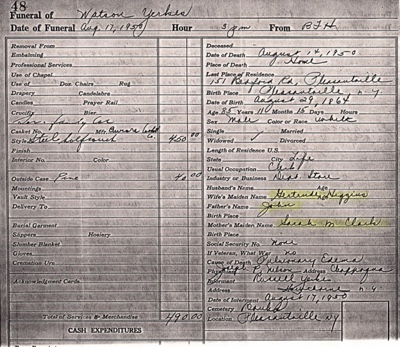 48
Funeral of Watson Yerkes
Date of Funeral Aug 17, 1950 Hour 3 pm From B.F.H.
Removal From
Embalming
Professional Services
Use of Chapel
Use of Door Chairs Rug
Drapery Candelabra
Candles Prayer Rail
Crucifix Bier
Family Car
Casket No. Mfr.
Style 450.00
Finish
Interior No. Color
Outside Case Pine 40.00
Mountings
Vault Style
Delivery To
Burial Garment
Slippers Hosiery
Slumber Blanket
Gloves
Cremation Urn
Acknowledgment Cards
Total of Services & Merchandise 490.00
CASH EXPENDITURES
Deceased
Date of Death August 14, 1950
Place of Death Home
Last Place of Residence
751 Bedford Rd, Pleasantville
Birth Place Pleasantville N.Y.
Date of Birth August 29, 1864
Age 85 Years 11 Months 15 Days Hours
Sex Male Color or Race White
Single Married
Widowed Divorced
Length of Residence U.S.
State City Life
Usual Occupation Clerk
Industry or Business Dept Store
Husband's Name Age
Wife's Maiden Name Gertrude Higgins
Father's Name John
Birth Place
Mother's Maiden Name Sarah M. Clark
Birth Place
Social Security No. None
If Veteran, What War no
Cause of Death Pulmonary Edema
Address Chappaqua
Informant Russell
Address N.Y.
Date of Interment August 17, 1950
Cemetery Banks
Location Pleasantville NY